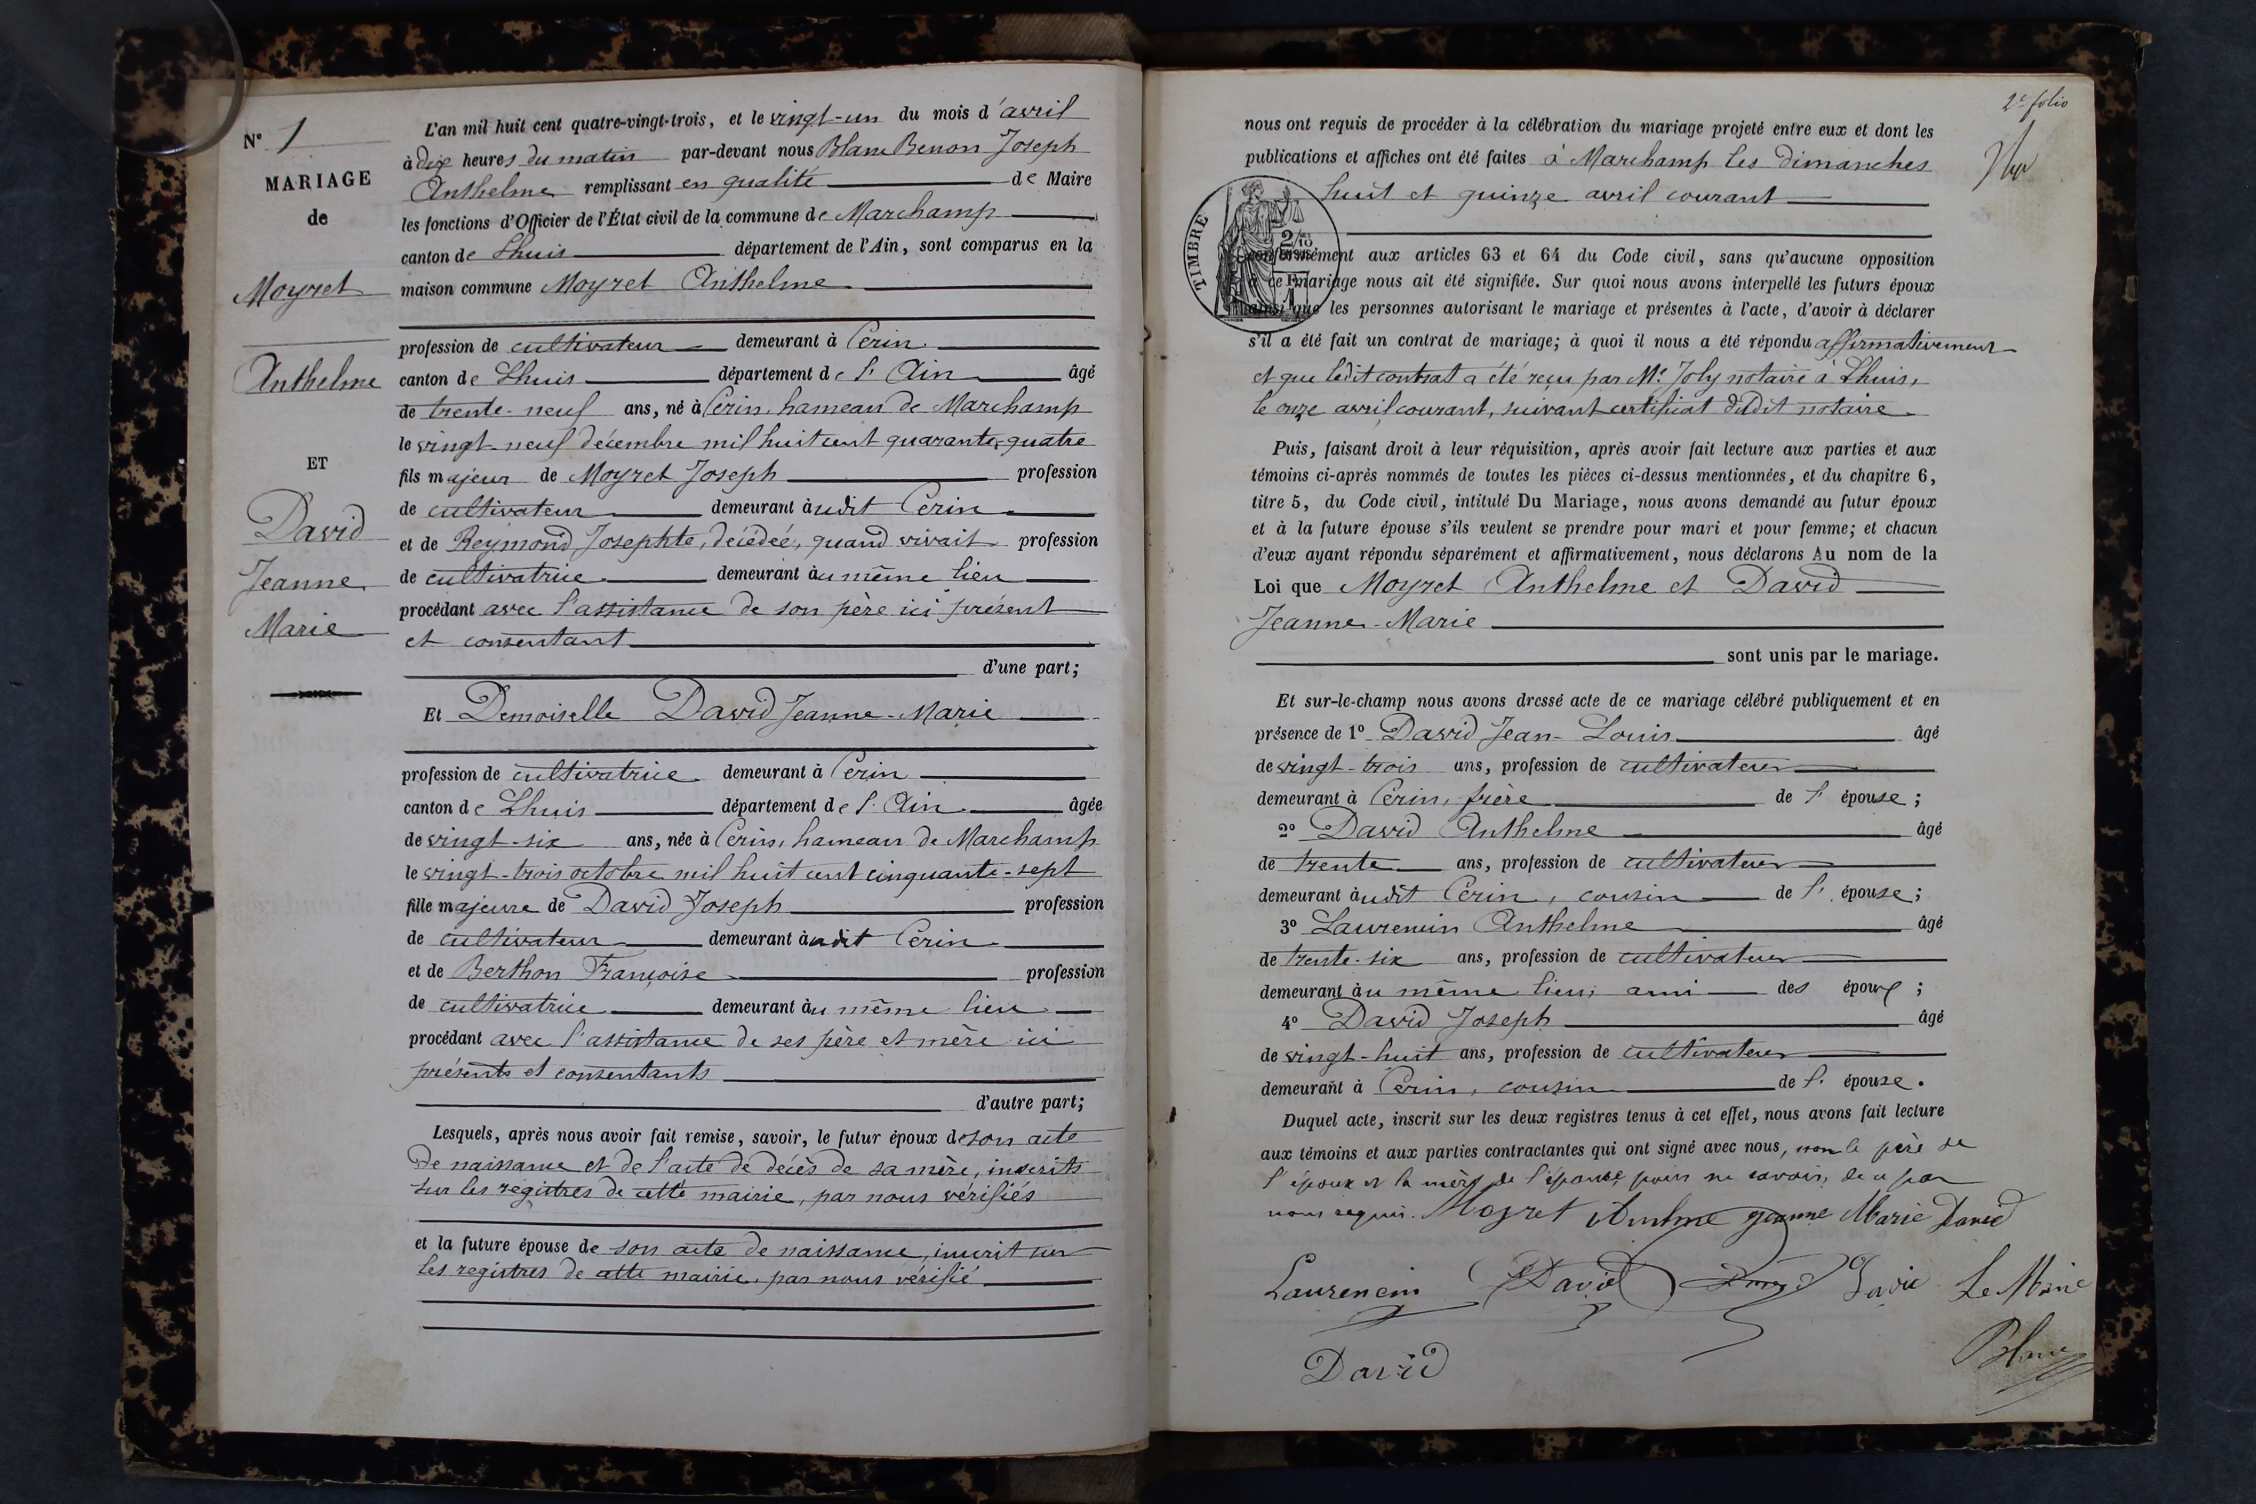 N° 1
MARIAGE
de
Moyret
Anthelme
ET
David
Jeanne
Marie
L'an mil huit cent quatre-vingt-trois, et le vingt-un du mois d'avril
à dix heures du matin par-devant nous Blanc Benon Joseph
Anthelme remplissant en qualité de Maire
les fonctions d'Officier de l'État civil de la commune de Marchamp
canton de Lhuis département de l'Ain, sont comparus en la
maison commune Moyret Anthelme
profession de cultivateur demeurant à Cerin
canton de Lhuis département de l'Ain âgé
de trente-neuf ans, né à Cerin, hameau de Marchamp
le vingt-neuf décembre mil huit cent quarante-quatre
fils majeur de Moyret Joseph profession
de cultivateur demeurant audit Cerin
et de Reymond Josephte, décédée, quand vivait profession
de cultivatrice demeurant au même lieu
procédant avec l'assistance de son père ici présent
et consentant
d'une part;
Et Demoiselle David Jeanne-Marie
profession de cultivatrice demeurant à Cerin
canton de Lhuis département de l'Ain âgée
de vingt-six ans, née à Cerin, hameau de Marchamp
le vingt-trois octobre mil huit cent cinquante-sept
fille majeure de David Joseph profession
de cultivateur demeurant audit Cerin
et de Berthon Françoise profession
de cultivatrice demeurant au même lieu
procédant avec l'assistance de ses père et mère ici
présents et consentants
d'autre part;
Lesquels, après nous avoir fait remise, savoir, le futur époux de son acte
de naissance et de l'acte de décès de sa mère, inscrits
sur les registres de cette mairie, par nous vérifiés
et la future épouse de son acte de naissance, inscrit sur
les registres de cette mairie, par nous vérifié
2e folio
nous ont requis de procéder à la célébration du mariage projeté entre eux et dont les
publications et affiches ont été faites à Marchamp les dimanches
huit et quinze avril courant
TIMBRE
2/10
conformément aux articles 63 et 64 du Code civil, sans qu'aucune opposition
à ce mariage nous ait été signifiée. Sur quoi nous avons interpellé les futurs époux
ainsi que les personnes autorisant le mariage et présentes à l'acte, d'avoir à déclarer
s'il a été fait un contrat de mariage; à quoi il nous a été répondu affirmativement
et que ledit contrat a été reçu par Me Joly notaire à Lhuis,
le onze avril courant, suivant certificat dudit notaire.
Puis, faisant droit à leur réquisition, après avoir fait lecture aux parties et aux
témoins ci-après nommés de toutes les pièces ci-dessus mentionnées, et du chapitre 6,
titre 5, du Code civil, intitulé Du Mariage, nous avons demandé au futur époux
et à la future épouse s'ils veulent se prendre pour mari et pour femme; et chacun
d'eux ayant répondu séparément et affirmativement, nous déclarons Au nom de la
Loi que Moyret Anthelme et David
Jeanne-Marie
sont unis par le mariage.
Et sur-le-champ nous avons dressé acte de ce mariage célébré publiquement et en
présence de 1° David Jean-Louis âgé
de vingt-trois ans, profession de cultivateur
demeurant à Cerin, frère de l'épouse;
2° David Anthelme âgé
de trente ans, profession de cultivateur
demeurant audit Cerin, cousin de l'épouse;
3° Laurencin Anthelme âgé
de trente-six ans, profession de cultivateur
demeurant au même lieu, ami des époux;
4° David Joseph âgé
de vingt-huit ans, profession de cultivateur
demeurant à Cerin, cousin de l'épouse.
Duquel acte, inscrit sur les deux registres tenus à cet effet, nous avons fait lecture
aux témoins et aux parties contractantes qui ont signé avec nous, non le père de
l'époux et la mère de l'épouse pour ne savoir, de ce par
nous requis. Moyret Jeanne Marie David
Laurencin David David Le Maire
David Blanc